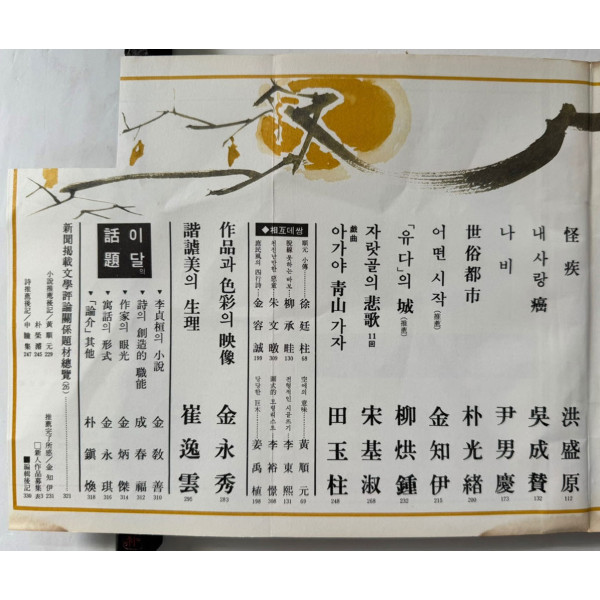 怪疾 洪盛原 112
내사랑癌 吳成贊 132
나비 尹男慶 173
世俗都市 朴光緖 200
어떤 시작(推薦) 金知伊 215
「유다」의 城(推薦) 柳烘鍾 232
자랏골의 悲歌 11回 宋基淑 268
戱曲
아가야 靑山 가자 田玉柱 248
◆相互데쌍
順元 小傳 徐廷柱 68
脫線못하는 바보 柳承畦 130
천진난만한 惡童 朱文暾 309
庶民風의 四行詩 金容誠 198
空地의 意味 黃順元 69
전형적인 시골쓰기 李東熙 131
李裕憬 308
당당한 巨木 姜禹植 198
作品과 色彩의 映像 金永秀 202
諧謔美의 生理 崔逸雲 295
이달의 話題
▼李貞桓의 小說 金敎善 310
▼詩의 創造的 職能 成春福 312
▼作家의 眼光 金炳傑 314
▼寓話의 形式 金永琪 316
▼「論介」其他 朴鎭煥 318
新聞揭載文學評論關係題材總覽(26) 321
小說推薦後記/黃順元 229
朴榮濬 245
詩推薦後記/申瞳集 247
推薦完了所感/金知伊 231
□新人作品募集 表3
■編輯後記 330